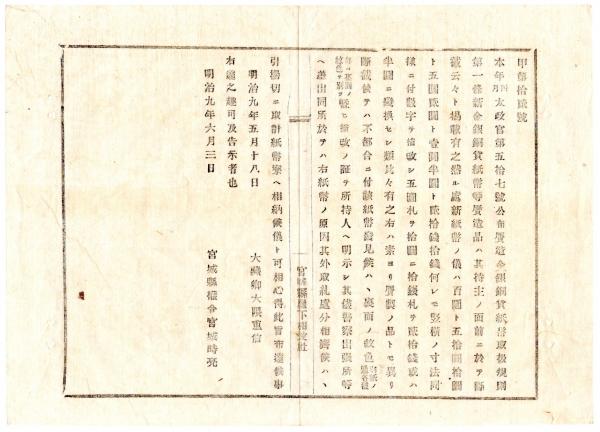 甲第拾貳號
本年四月太政官第五十七號公布贋造金銀銅貨紙幣取扱規則
第一條新金銀銅貨紙幣等贋造品ハ其持主ノ面前ニ於テ
截云々ト揭載有之然ル處新紙幣ノ儀ハ百圓ト五十圓拾圓
ト五圓貳圓ト壹圓半圓ト貳拾錢拾錢何レモ竪橫ノ寸法同
樣ニ付數字ヲ描改シ五圓札ヲ拾圓ニ拾錢札ヲ貳拾錢或ハ
半圓ニ變換セシ類此々有之右ハ素ヨリ贋製ノ品トモ異リ
斷截候テハ不都合ニ付該紙幣發見候ハヽ裏面ノ紋色
ヲ描改ノ証ヲ所持人ヘ明示シ其儀警察出張所等
ヘ差出同所於テハ右紙幣ノ原因其外取糺處分相濟候ハヽ
宮城縣
引揚切ニ取計紙幣寮ヘ相納候儀ト可相心得此旨布達候事
明治九年五月十八日
大藏卿大隈重信
右達之趣可及告示者也
明治九年六月三日
宮城縣權令宮城時亮